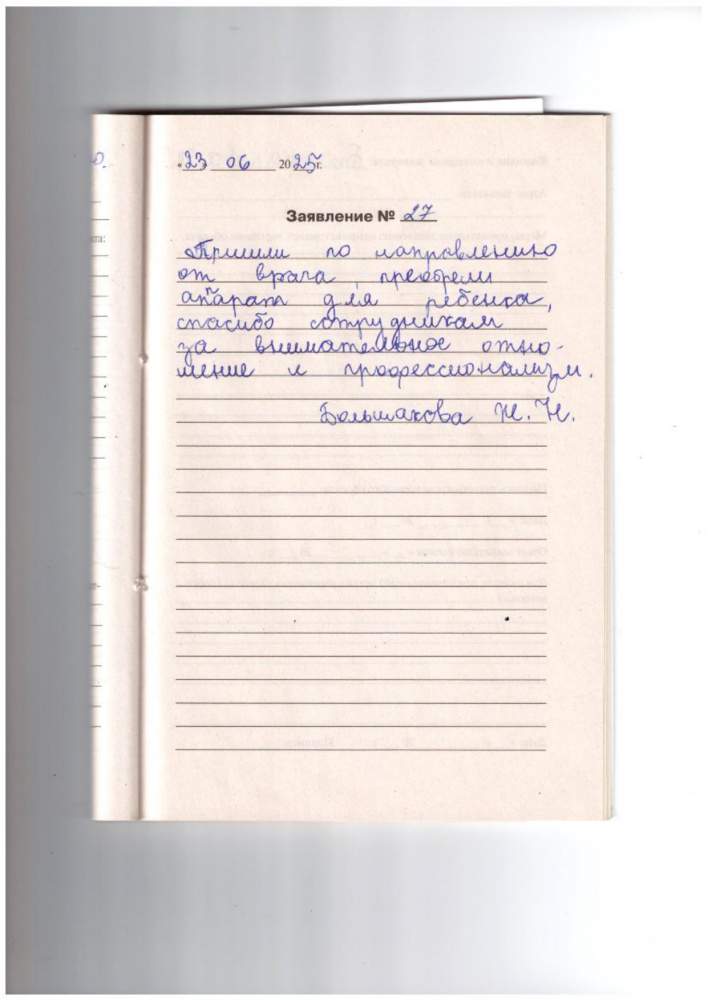 «23» 06 2025г.
Заявление № 27
Пришли по направлению
от врача, преобрели
аппарат для ребенка,
спасибо сотрудникам
за внимательное отно-
шение и профессионализм.
Большакова Н. Н.